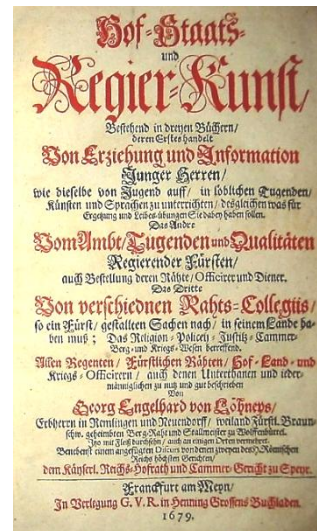 Hof-Staats-
und
Regier-Kunst/
Bestehend in dreyen Büchern/
deren Erstes handelt
Von Erziehung und Information
Junger Herren/
wie dieselbe von Jugend auff/ in löblichen Tugenden/
Künsten und Sprachen zu unterrichten/ desgleichen was für
Ergetzung und Leibes-übungen Sie dabey haben sollen.
Das Andre
Vom Ambt/ Tugenden und Qualitäten
Regierender Fürsten/
auch Bestellung deren Rähte/ Officirer und Diener.
Das Dritte
Von verschiednen Rahts-Collegiis/
so ein Fürst/ gestalten Sachen nach/ in seinem Lande ha-
ben muß; Das Religion- Policeij- Justitz- Cammer-
Berg- und Kriegs- Wesen betreffend.
Allen Regenten/ Fürstlichen Rähten/ Hof- Land- und
Kriegs- Officirern/ auch denen Unterthanen und ieder-
männiglichen zu nutz und gut beschrieben
Von
Georg Engelhard von Löhneys/
Erbherrn in Remlingen und Neuendorff/ weiland Fürstl. Braun-
schw. geheimbten Berg-Raht und Stallmeister zu Wolffenbüttel.
Itzo mit Fleiß durchsehen/ auch an einigen Orten vermehret.
Benebenst einem angefügten Discurs von denen zweyen des H. Römischen
Reichs höchsten Gerichten/
dem Käyserl. Reichs-Hofrath und Cammer-Gericht zu Speyr.
Franckfurt am Meyn/
In Verlegung G. V. R. in Henning Grossens Buchladen.
1679.